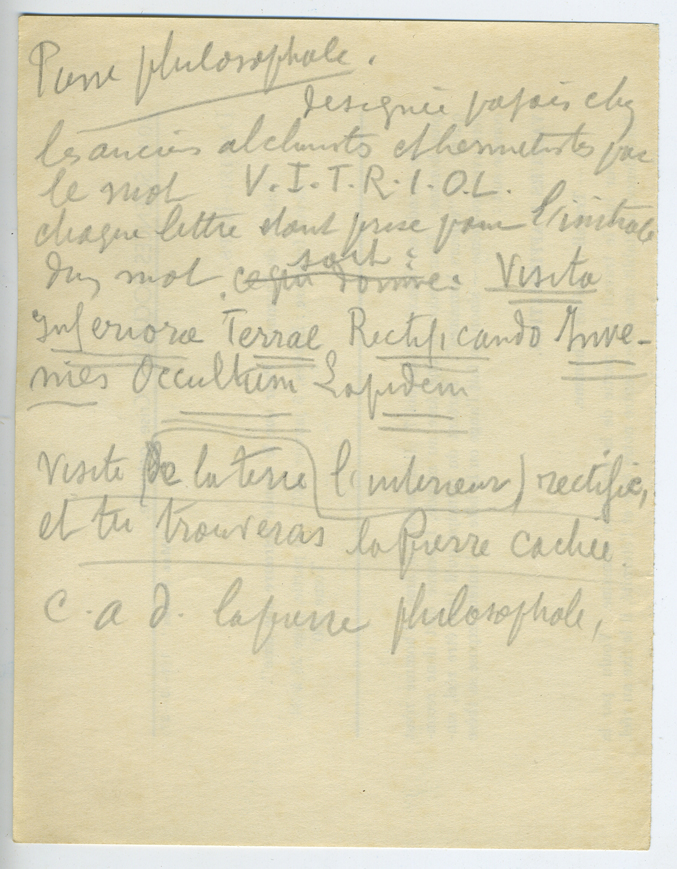 Pierre philosophale.
designée parfois chez
les anciens alchimistes et hermetistes par
le mot V.I.T.R.I.O.L.
chaque lettre étant prise pour l'initiale
d'un mot. soit :
ce qui donne : Visita
Inferiora Terrae Rectificando Inve-
nies Occultum Lapidem
Visite (de la terre l'interieur) rectifie,
et tu trouveras la Pierre cachée.
C. a d. la pierre philosophale,